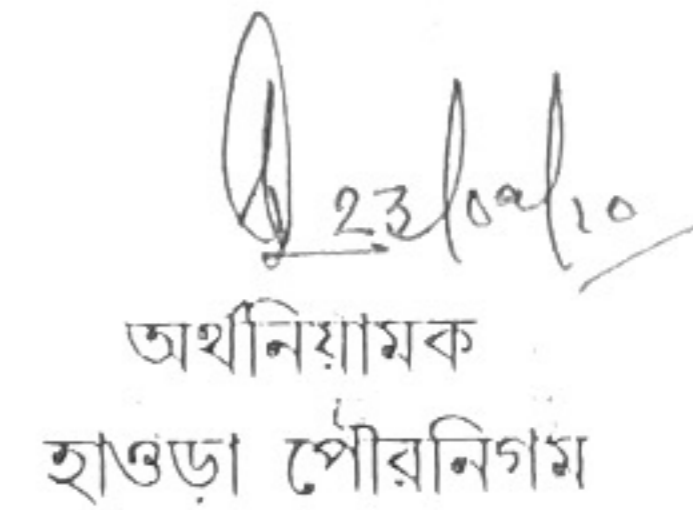 23/09/10
অর্থনিয়ামক
হাওড়া পৌরনিগম